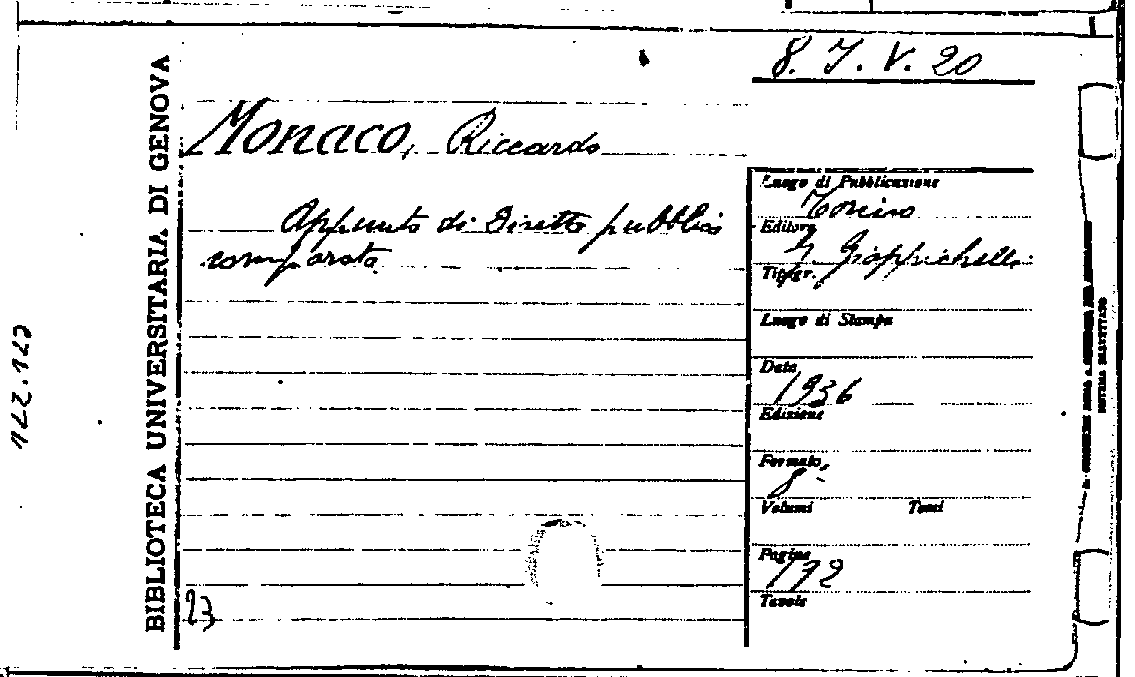 8. J. V. 20
BIBLIOTECA UNIVERSITARIA DI GENOVA
Monaco, Riccardo
Appunti di Diritto pubblico
comparato
Luogo di Pubblicazione
Torino
Editore
G. Giappichelli
Tipogr.
Luogo di Stampa
Data
1936
Edizione
Formato
8°
Volumi Tomi
Pagine
172
Tavole
23
122.127